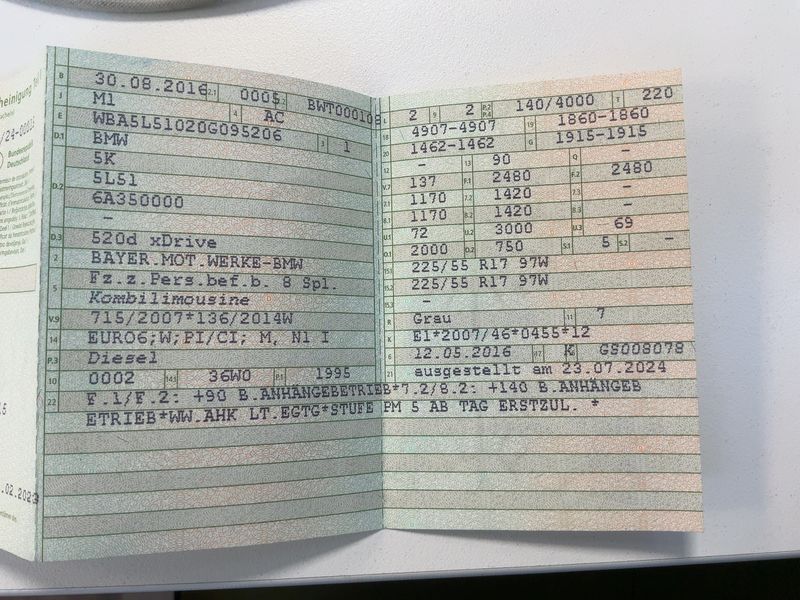 heinigung Teil I
/24-00005
Bundesrepublik
Deutschland
.02.2023
B 30.08.2016 2.1 0005 2.2 BWT000108
J M1 4 AC
E WBA5L51020G095206 3 1
D.1 BMW
5K
D.2 5L51
6A350000
–
D.3 520d xDrive
2 BAYER.MOT.WERKE-BMW
5 Fz.z.Pers.bef.b. 8 Spl.
Kombilimousine
V.9 715/2007*136/2014W
14 EURO6;W;PI/CI; M, N1 I
P.3 Diesel
10 0002 14.1 36W0 P.1 1995
L 2 9 2 P.2 P.4 140/4000 T 220
18 4907-4907 19 1860-1860
20 1462-1462 G 1915-1915
12 – 13 90 Q –
V.7 137 F.1 2480 F.2 2480
7.1 1170 7.2 1420 7.3 –
8.1 1170 8.2 1420 8.3 –
U.1 72 U.2 3000 U.3 69
O.1 2000 O.2 750 S.1 5 S.2 –
15.1 225/55 R17 97W
15.2 225/55 R17 97W
15.3 –
R Grau 11 7
K E1*2007/46*0455*12
6 12.05.2016 17 K GS008078
21 ausgestellt am 23.07.2024
22 F.1/F.2: +90 B.ANHÄNGEBETRIEB*7.2/8.2: +140 B.ANHÄNGEB
ETRIEB*WW.AHK LT.EGTG*STUFE PM 5 AB TAG ERSTZUL. *